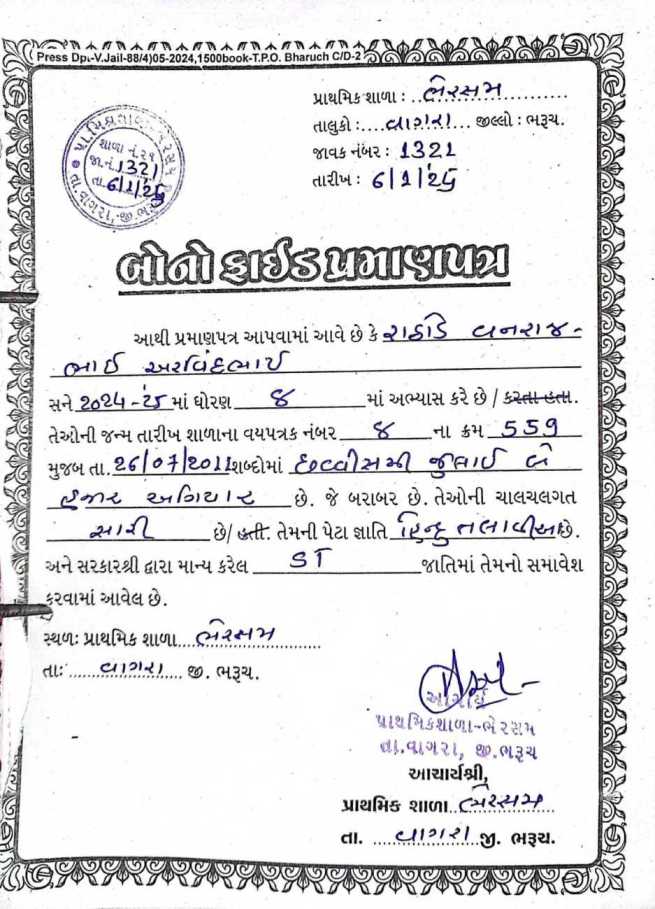 Press Dpt.-V.Jail-88/4)05-2024,1500book-T.P.O. Bharuch C/D-2
પ્રાથમિક શાળા : ભેરસમ
તાલુકો : વાગરા જીલ્લો : ભરૂચ.
જાવક નંબર : 1321
તારીખ : 6/1/25
શાળા નં.૨૧
જા.નં. 1321
તા. 6/1/25
તા. વાગરા, જી. ભરૂચ
બોનોફાઈડ પ્રમાણપત્ર
આથી પ્રમાણપત્ર આપવામાં આવે છે કે રાઠોડ વનરાજ-
ભાઈ અરવિંદભાઈ
સને 2024-25 માં ધોરણ ૪ માં અભ્યાસ કરે છે / કરતા હતા.
તેઓની જન્મ તારીખ શાળાના વયપત્રક નંબર ૪ ના ક્રમ 559
મુજબ તા. 26/07/2011 શબ્દોમાં છવ્વીસમી જુલાઈ બે
હજાર અગિયાર છે. જે બરાબર છે. તેઓની ચાલચલગત
સારી છે/ હતી. તેમની પેટા જ્ઞાતિ હિન્દુ તલાવીઆ છે.
અને સરકારશ્રી દ્વારા માન્ય કરેલ ST જાતિમાં તેમનો સમાવેશ
કરવામાં આવેલ છે.
સ્થળ: પ્રાથમિક શાળા ભેરસમ
તા: વાગરા જી. ભરૂચ.
આચાર્ય
પ્રાથમિકશાળા-ભેરસમ
તા.વાગરા, જી.ભરૂચ
આચાર્યશ્રી,
પ્રાથમિક શાળા ભેરસમ
તા. વાગરા જી. ભરૂચ.